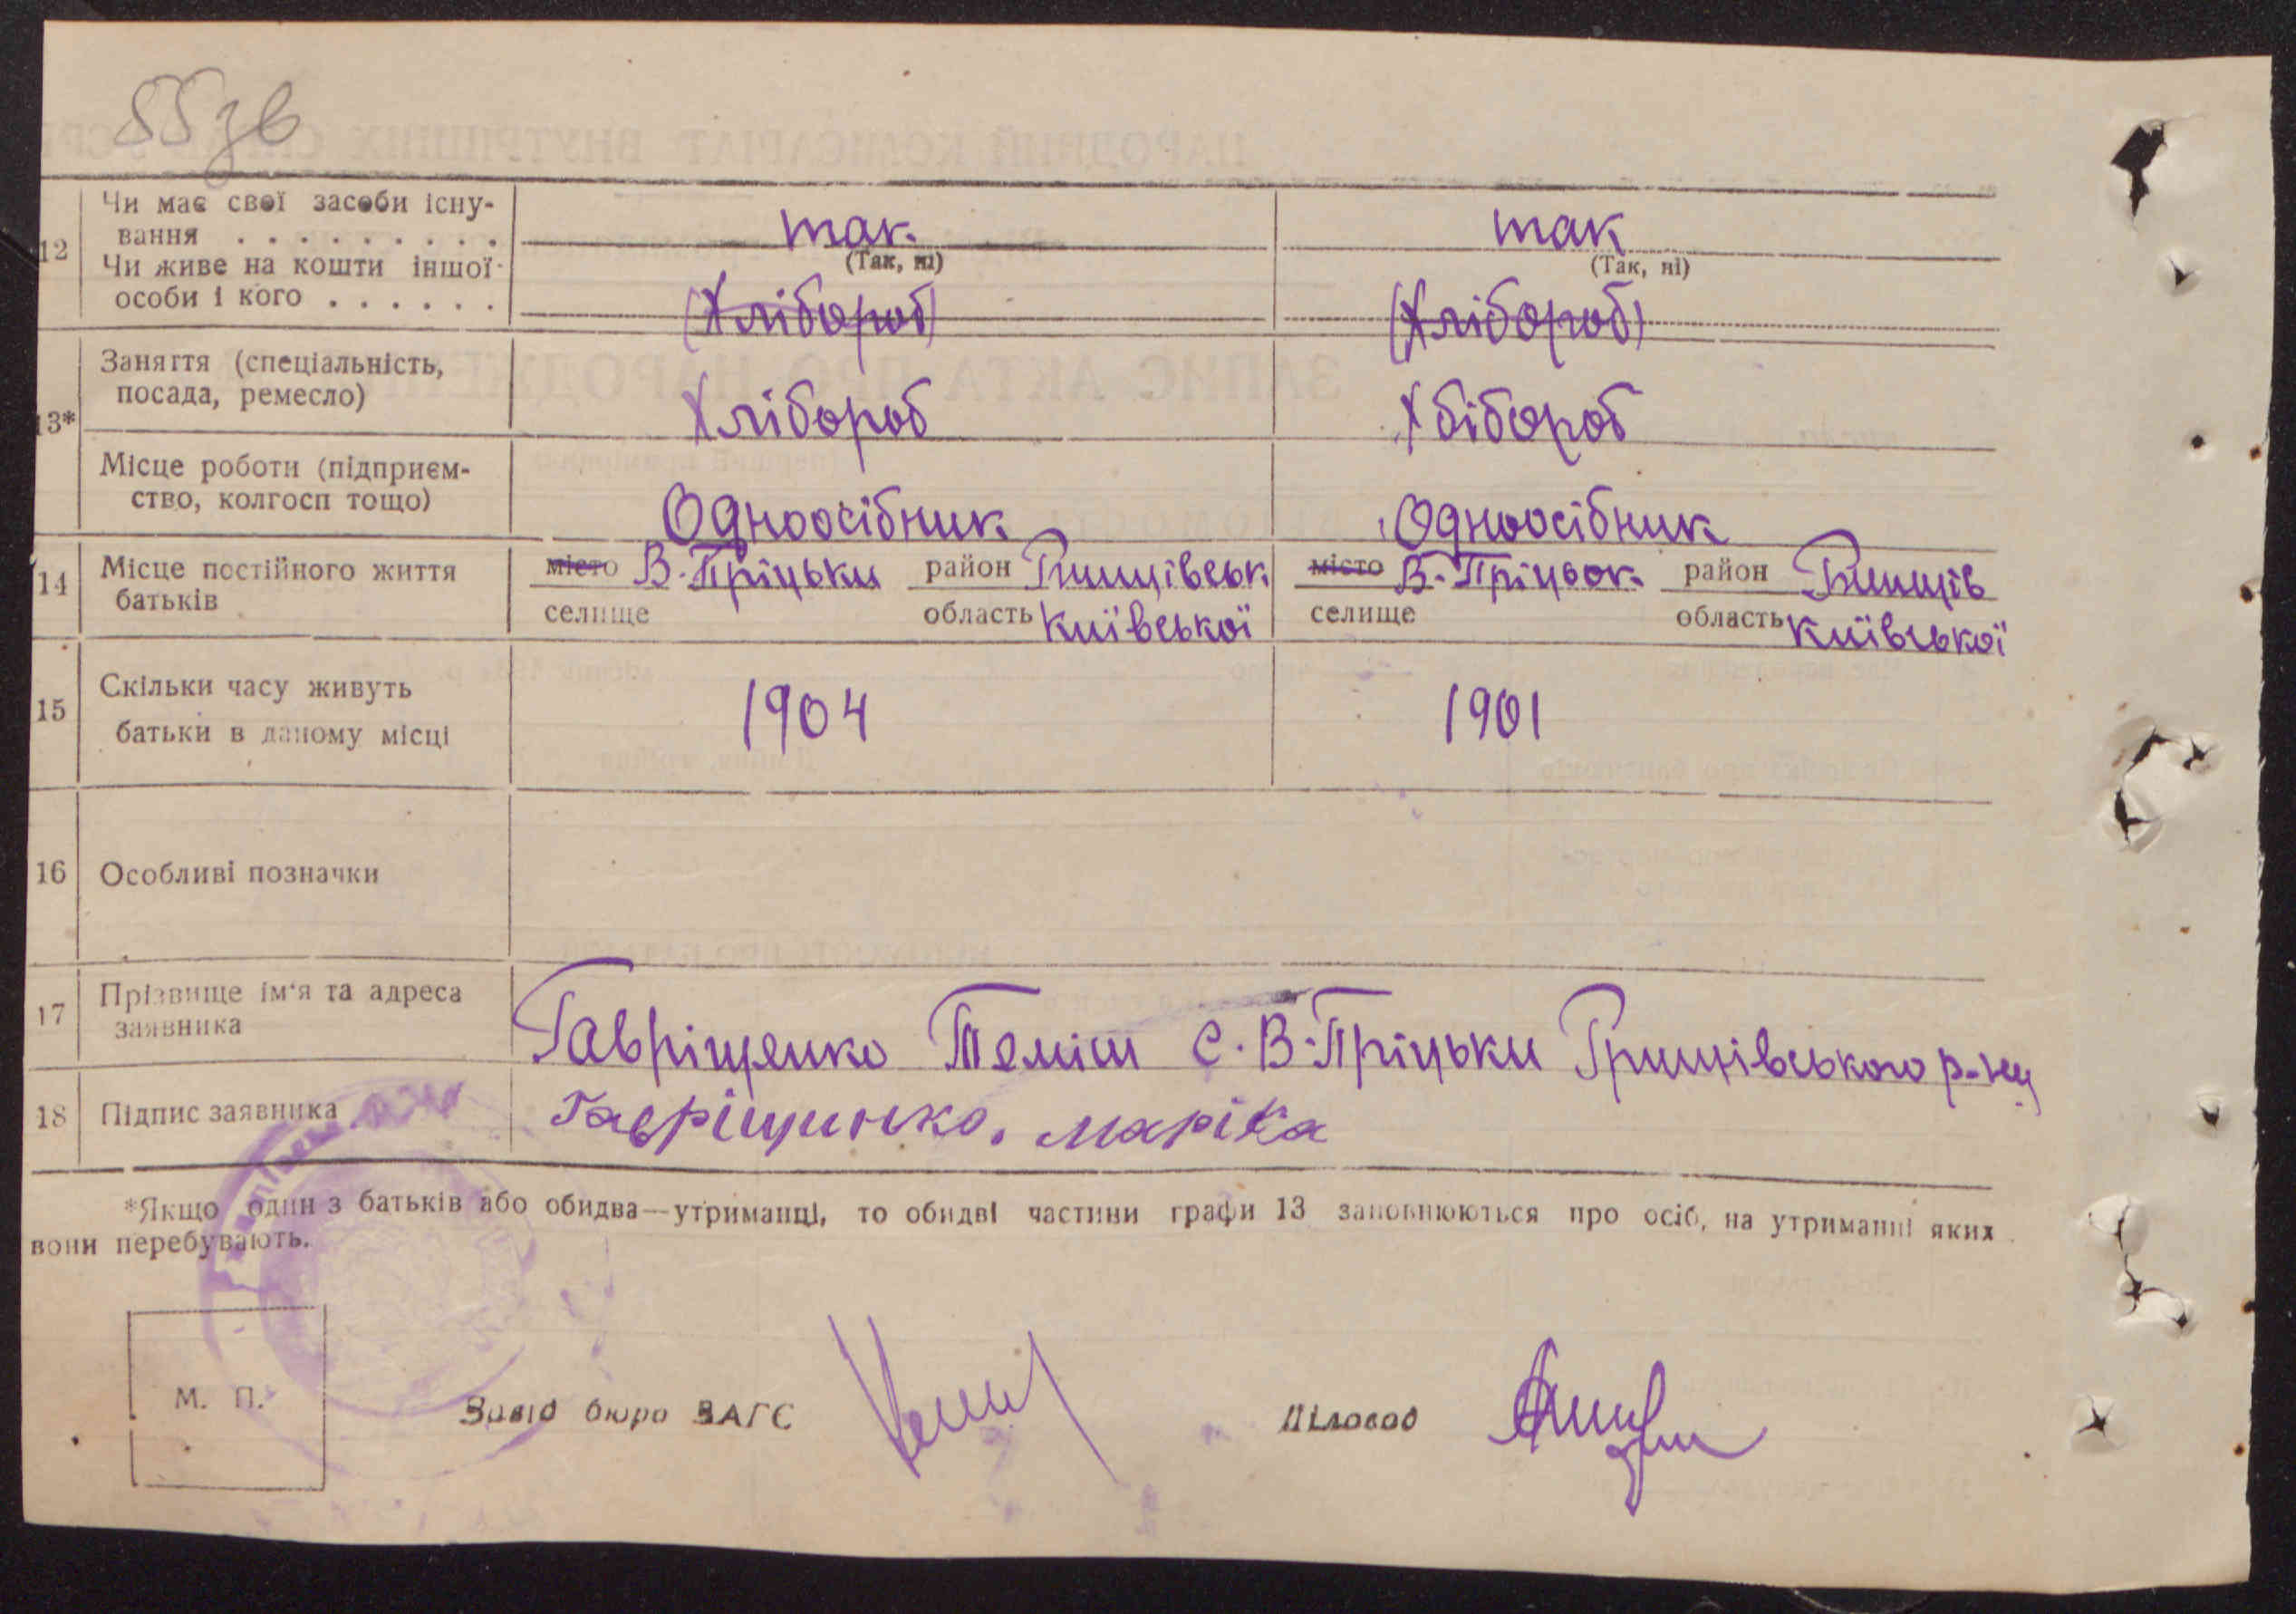 55зв
12 Чи має свої засоби існу-
вання . . . . . . . . . так. так
(Так, ні) (Так, ні)
Чи живе на кошти іншої
особи і кого . . . . . . (Хлібороб) (Хлібороб)
13* Заняття (спеціальність,
посада, ремесло) Хлібороб Хбібороб
Місце роботи (підприєм-
ство, колгосп тощо) Одноосібник Одноосібник
14 Місце постійного життя
батьків
місто В-Пріцьки район
селище область Київської
місто В-Пріцьок район
селище область Київської
15 Скільки часу живуть
батьки в даному місці 1904 1901
16 Особливі позначки
17 Прізвище ім'я та адреса
заявника Гавріщенко с. В-Пріцьки р-ну
18 Підпис заявника Гавріщинко. маріка
*Якщо один з батьків або обидва—утриманці, то обидві частини графи 13 заповнюються про осіб, на утриманні яких
вони перебувають.
М. П.
Завід бюро ЗАГС Діловод